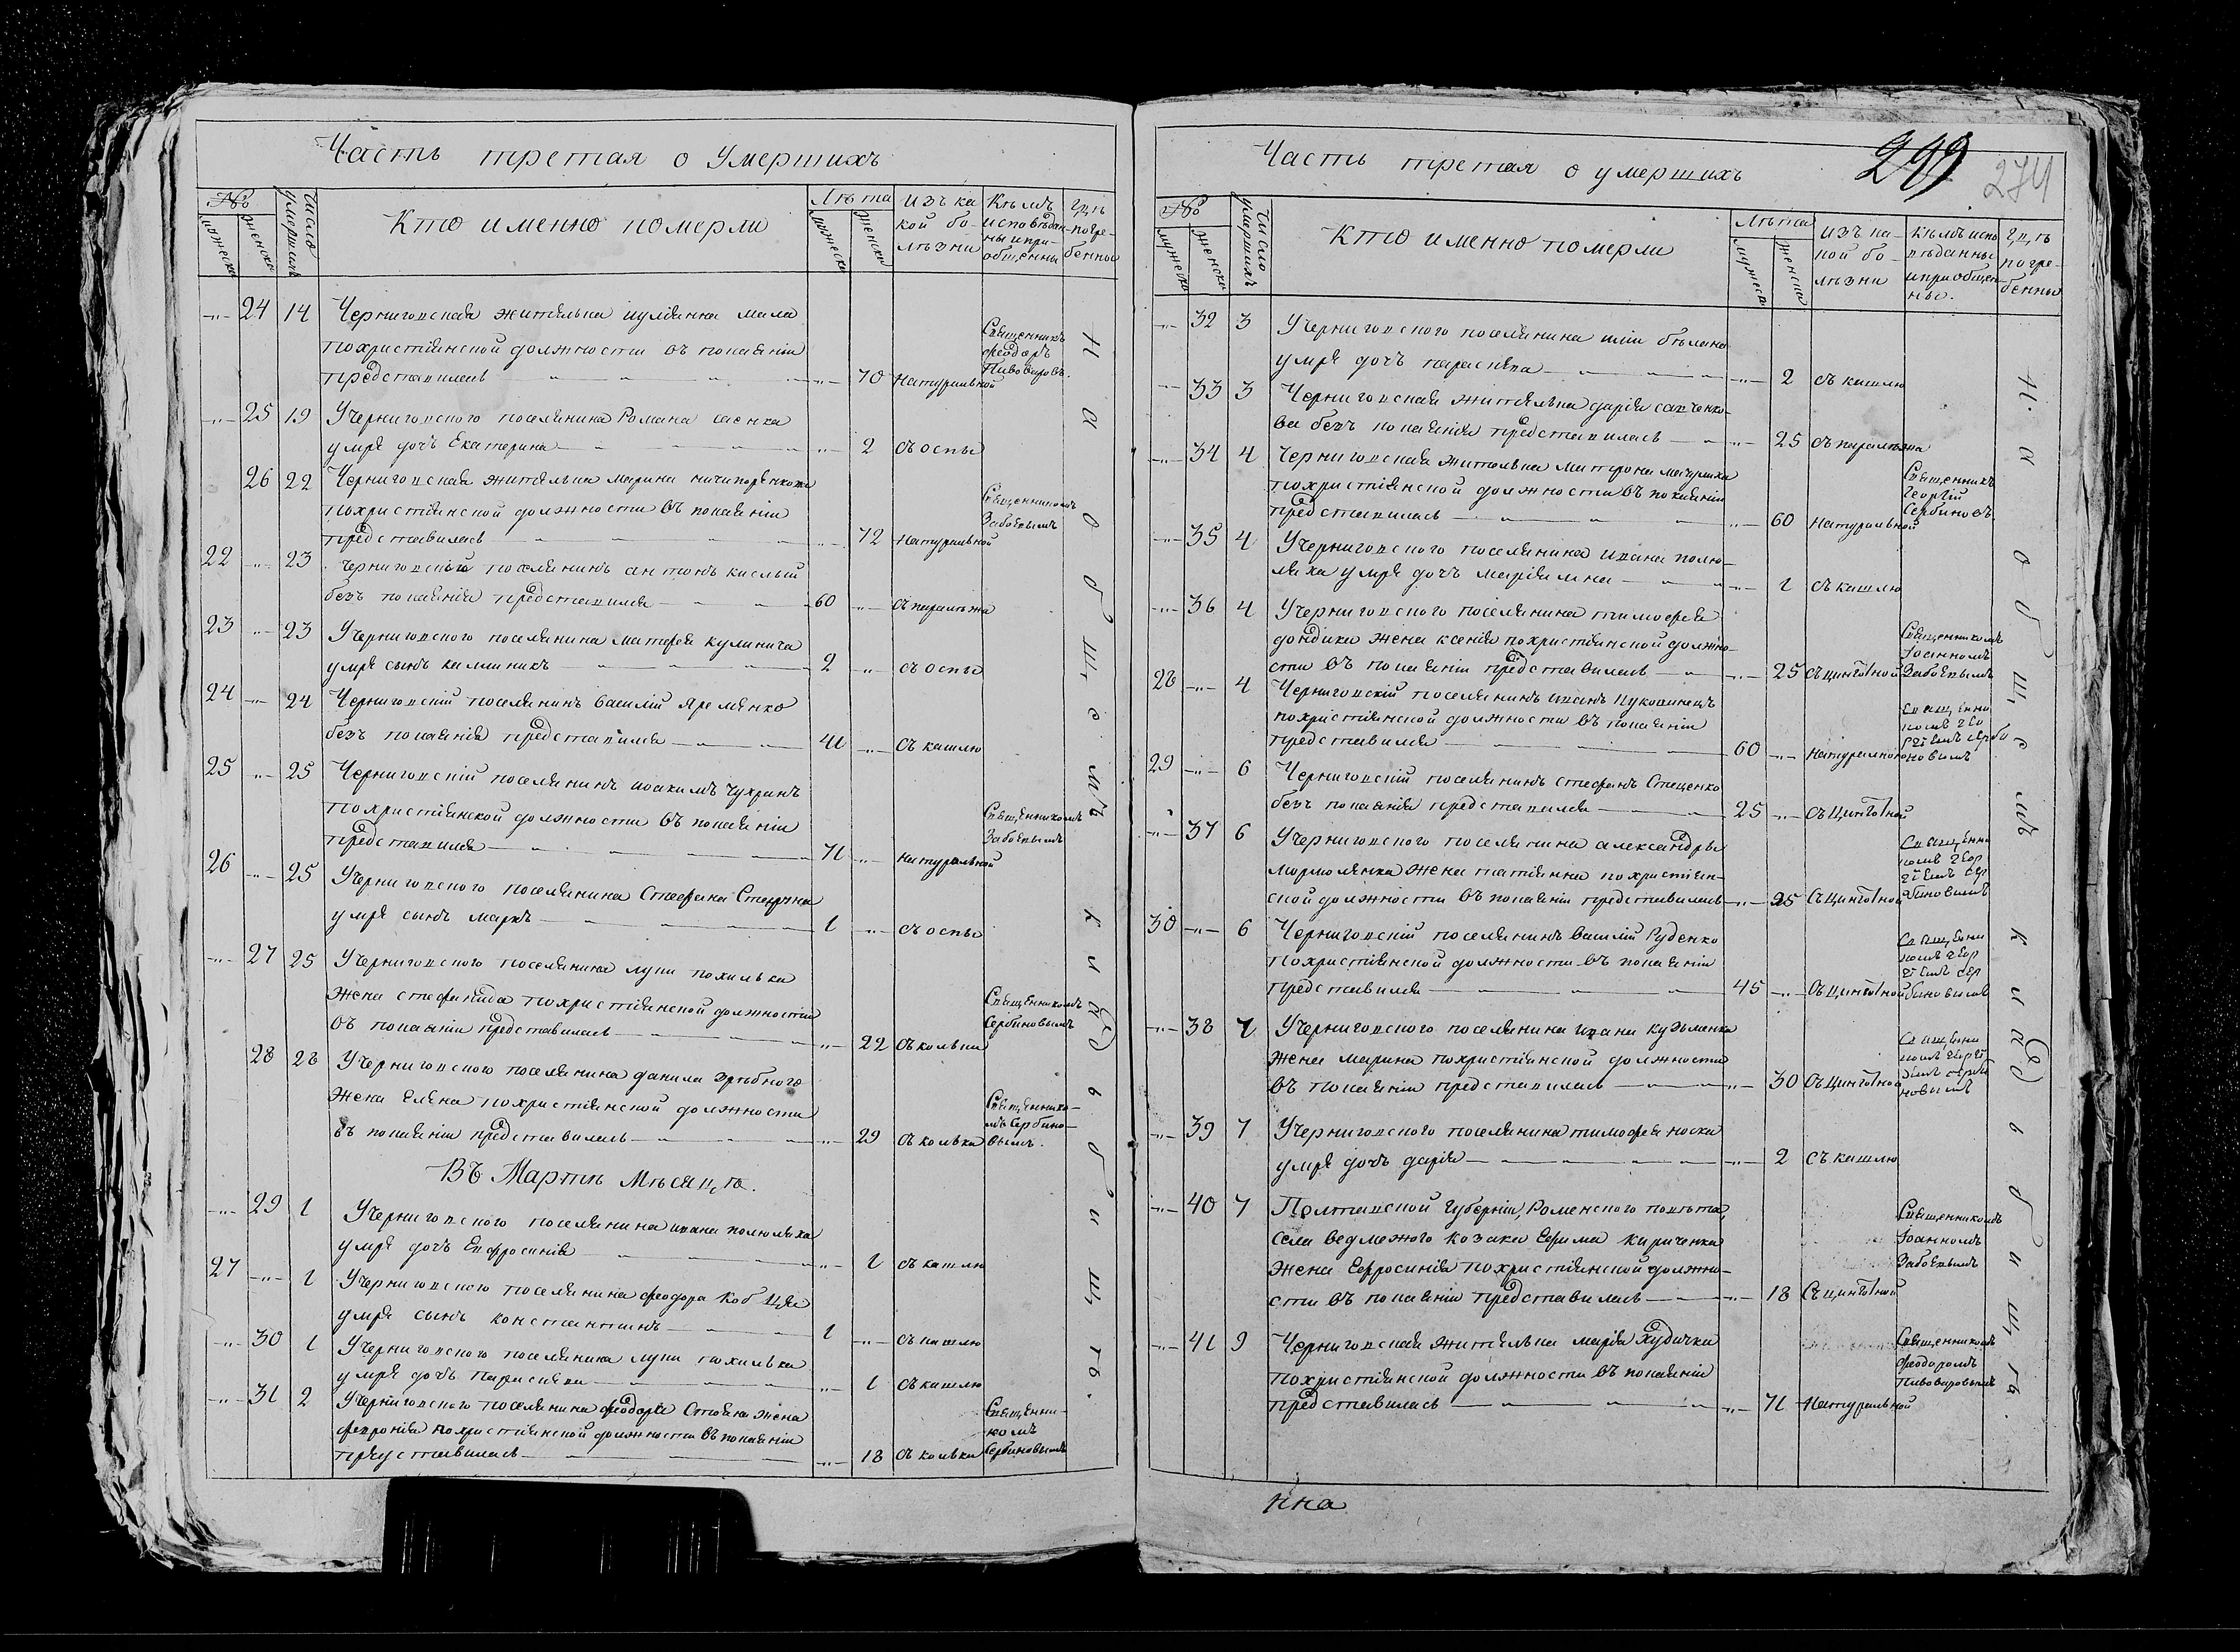 Часть третая о Умершихъ
№
мужеска
женска
число умершихъ
Кто именно померли
Лѣта
мужеска
женска
изъ какой болѣзни
Кѣмъ исповѣданы и пріобщены
гдѣ погребенны
-"- 24 14 Черниговская жителька иуліянна мала
похристіянской должности въ покаяніи
представилась -"- 70 Натуральной
Священникъ
феодоръ
Пивоваровъ.
-"- 25 19 Учерниговского поселянина Романа саенка
умре дочъ Екатерина -"- 2 съ оспы
26 22 Черниговская жителька марина ничипоренкова
похристіянской должности въ покаяніи
представилась 72 натуральной
Священникомъ
Забоевымъ
22 -"- 23 Черниговский поселянинъ антонъ кислый
безъ покаянія представился 60 -"- съ паралѣжа
23 -"- 23 Учерниговского поселянина матфея кулинича
умре сынъ каллиникъ 2 -"- съ оспы
24 -"- 24 Черниговскій поселянинъ василій яременко
безъ покаянія представился 41 -"- съ кашлю
25 -"- 25 Черниговскій поселянинъ иоакимъ чухранъ
похристіянской должности въ покаяніи
представился 71 -"- натуральной
Священникомъ
Забоевымъ
26 -"- 25 Учерниговского поселянина Стефана
умре сынъ маркъ 1 -"- съ оспы
-"- 27 25 Учерниговского поселянина луки похилька
жена стефанида похристіянской должности
въ покаяніи представилась -"- 22 съ кольки
Священникомъ
Сербиновымъ
28 28 Учерниговского поселянина данила
жена Елена похристіянской должности
въ покаяніи представилась -"- 29 съ кольки
Священнико-
мъ Сербино-
вымъ.
Въ Мартѣ Мѣсяцѣ.
-"- 29 1 Учерниговского поселянина ивана полюляха
умре дочъ Евфросинія -"- 1 съ кашлю
27 -"- 1 Учерниговского поселянина феодора
умре сынъ константинъ 1 -"- съ кашлю
-"- 30 1 Учерниговского поселянина луки похилька
умре дочъ параскева -"- 1 съ кашлю
-"- 31 2 Учерниговского поселянина феодора Стояна жена
февронія похристіянской должности въ покаяніи
преуставилась -"- 18 съ кольки
Священни-
комъ
Сербиновымъ
На общемъ кладьбищѣ.
Часть третая о умершихъ
299
274
№
мужеска
женска
число умершихъ
Кто именно померли
Лѣта
мужеска
женска
изъ какой болѣзни
Кѣмъ исповѣданны и пріобщенные.
гдѣ погребенны
-"- 32 3 Учерниговского поселянина иліи бѣлана
умре дочъ параскева -"- 2 съ кашлю
-"- 33 3 Черниговская жителька дарія савченко-
ва безъ покаянія представилась -"- 25 съ паралѣжа
-"- 34 4 Черниговская жителька матрона
похристіянской должности въ покаяніи
представилась -"- 60 натуральной
Священникъ
Георгій
Сербиновъ.
-"- 35 4 Учерниговского поселянина ивана полю-
ляха умре дочъ маріамна -"- 1 съ кашлю
-"- 36 4 Учерниговского поселянина тимофея
дондика жена ксенія похристіянской должно-
сти въ покаяніи представилась -"- 25 съ цинготной
Священникомъ
Іоанномъ
Забоевымъ
28 -"- 4 Черниговскій поселянинъ иванъ
похристіянской должности въ покаяніи
представился 60 -"- натуральной
Священни
комъ Гео
ргіемъ Серби
новымъ
29 -"- 6 Черниговскій поселянинъ стефанъ Стеценко
безъ покаянія представился 25 -"- съ цинготной
-"- 37 6 Учерниговского поселянина александры
жена татіянна похристіян-
ской должности въ покаяніи представилась -"- 25 Съ цинготной
Священни
комъ Геор
гіемъ Сер
биновымъ
30 -"- 6 Черниговскій поселянинъ василій Руденко
похристіянской должности въ покаяніи
представился 45 -"- съ цинготной
Священни
комъ Геор
гіемъ Сер
биновымъ
-"- 38 7 Учерниговского поселянина ивана кузьменка
жена марина похристіянской должности
въ покаяніи представилась -"- 30 съ цинготной
Священни
комъ Георгі
емъ Серби
новымъ
-"- 39 7 Учерниговского поселянина тимофея носка
умре дочъ дарія -"- 2 съ кашлю
-"- 40 7 Полтавской Губерніи, Роменского повѣта,
села ведмежого козака Ефима кириченка
жена Ефросинія похристіянской должно-
сти въ покаяніи представилась -"- 18 Съ цинготной
Священникомъ
Іоанномъ
Забоевымъ
-"- 41 9 Черниговская жителька марія худичка
похристіянской должности въ покаяніи
представилась -"- 71 Натуральной
Священникомъ
феодоромъ
Пивоваровымъ
На общемъ кладьбищѣ.
нка